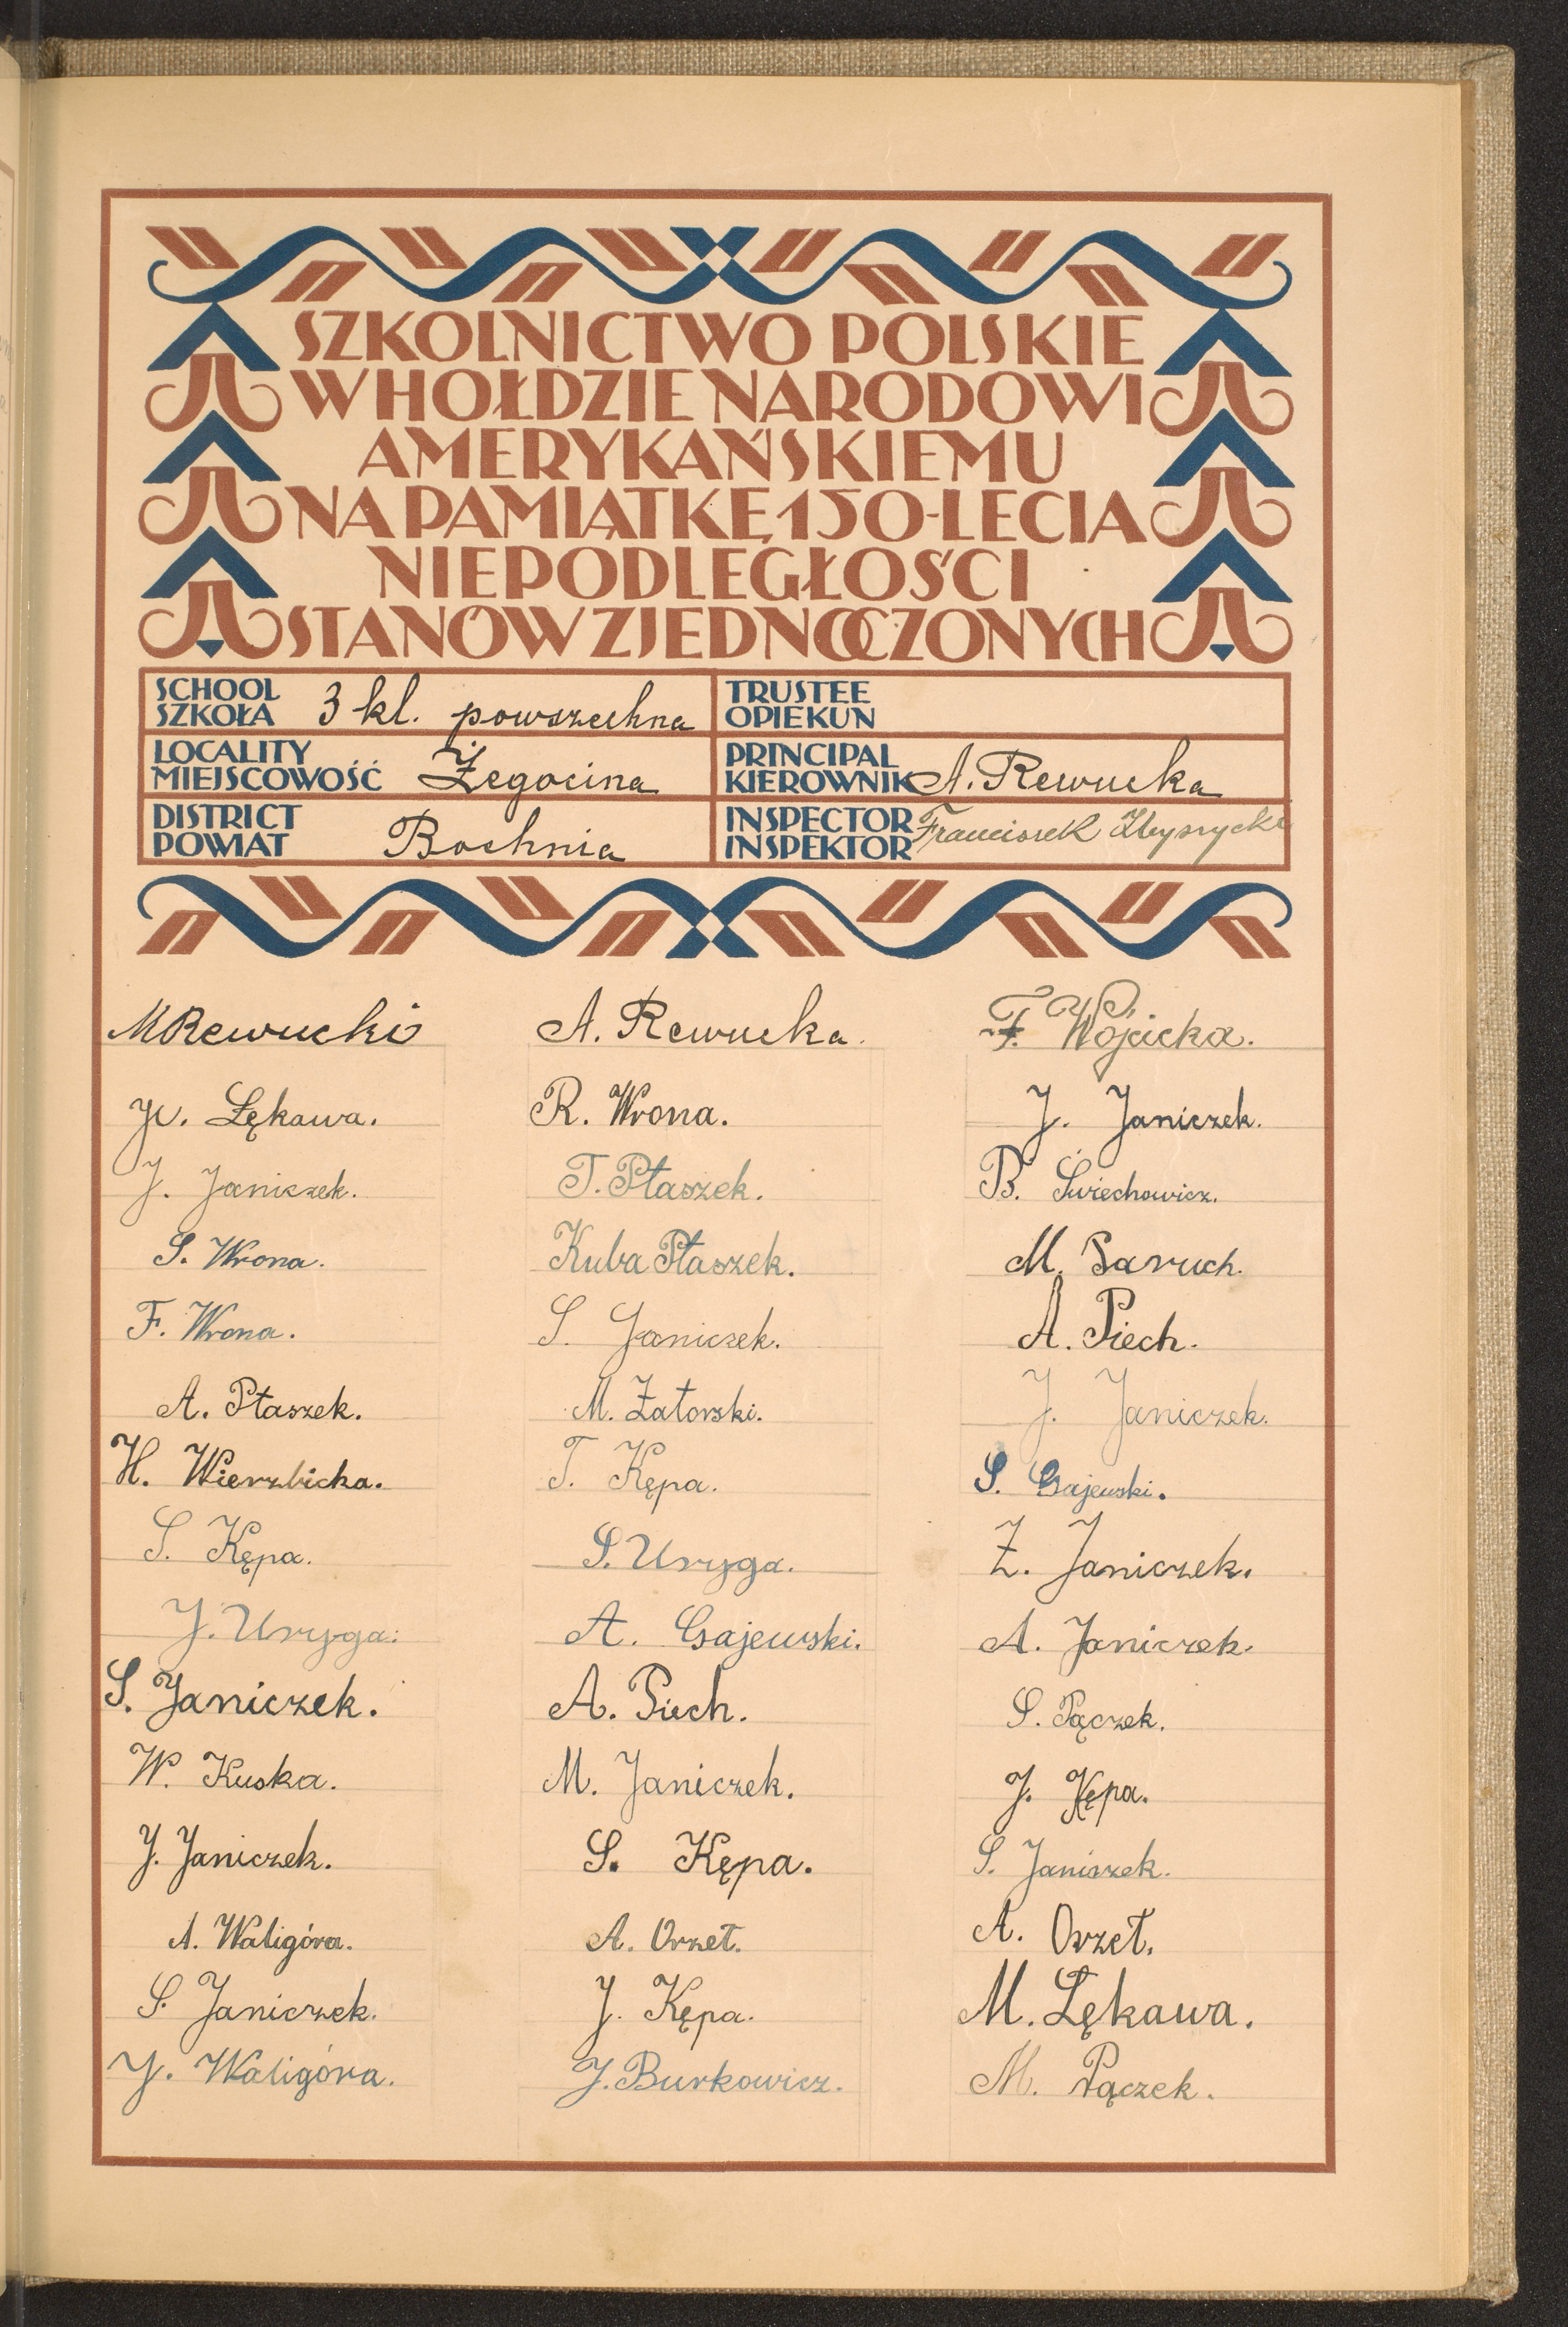 SZKOLNICTWO POLSKIE
W HOŁDZIE NARODOWI
AMERYKAŃSKIEMU
NA PAMIĄTKĘ 150-LECIA
NIEPODLEGŁOŚCI
STANÓW ZJEDNOCZONYCH
SCHOOL
SZKOŁA 3 kl. powszechna
TRUSTEE
OPIEKUN
LOCALITY
MIEJSCOWOŚĆ Żegocina
PRINCIPAL
KIEROWNIK A. Rewucka
DISTRICT
POWIAT Bochnia
INSPECTOR
INSPEKTOR Franciszek
M Rewucki A. Rewucka. F. Wójcicka.
W. Łękawa. R. Wrona. J. Janiczek.
J. Janiczek. T. Ptaszek. B. Świechowicz.
S. Wrona. Kuba Ptaszek. M. Paruch.
F. Wrona. S. Janiczek. A. Piech.
A. Ptaszek. M. Zatorski. J. Janiczek.
H. Wierzbicka. T. Kępa. S. Gajewski.
S. Kępa. S. Uryga. Z. Janiczek.
J. Uryga. A. Gajewski. A. Janiczek.
S. Janiczek. A. Piech. S. Pączek.
W. Kuska. M. Janiczek. J. Kępa.
J. Janiczek. S. Kępa. S. Janiczek.
A. Waligóra. A. Orzeł. A. Orzeł.
S. Janiczek. J. Kępa. M. Łękawa.
J. Waligóra. J. Burkowicz. M. Pączek.